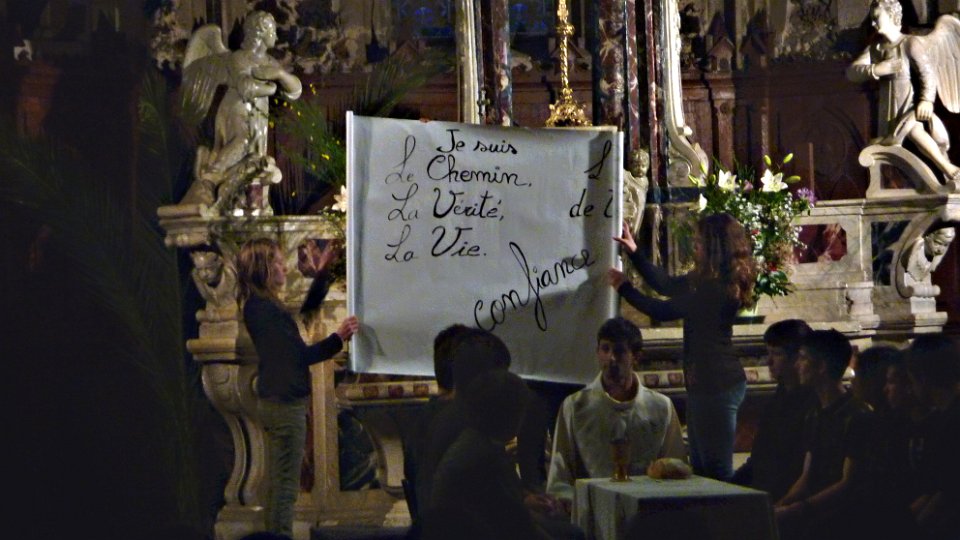 Je suis
Le Chemin,
La Vérité,
de
La Vie.
confiance